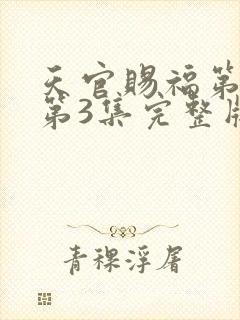 天官赐福第
第3集完整版
青稞浮屠